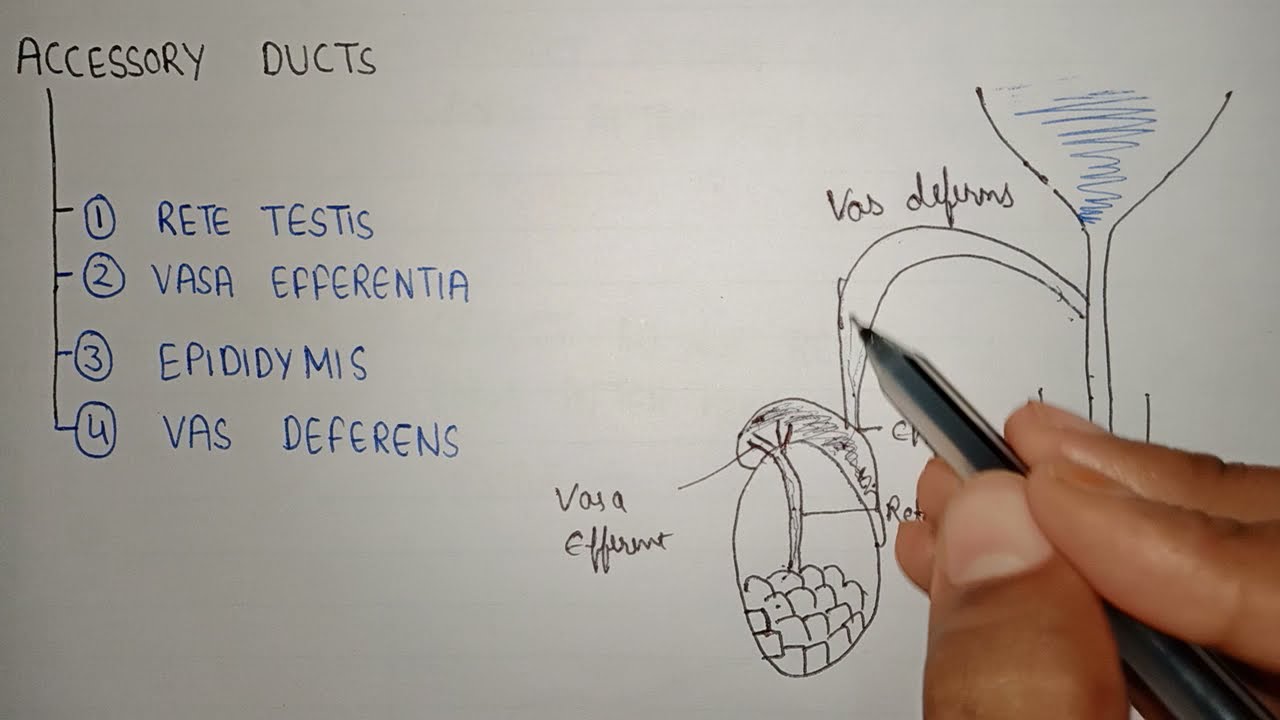 ACCESSORY DUCTS
① RETE TESTIS
② VASA EFFERENTIA
③ EPIDIDYMIS
④ VAS DEFERENS
Vas deferns
Vasa
Efferent